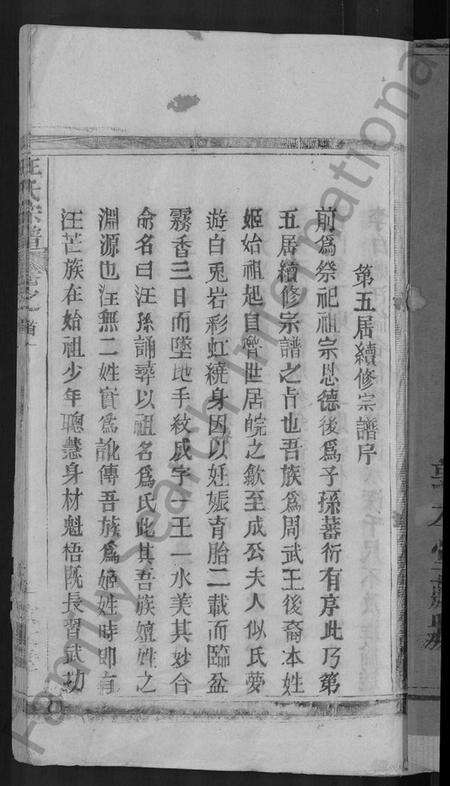 第五居續修宗譜序
前為祭祀祖宗恩德後為子孫蕃衍有序此乃第
五居續修宗譜之旨也吾族為周武王後裔本姓
姬始祖起自魯世居皖之歙至成公夫人似氏夢
遊白兎岩彩虹繞身因以妊娠育胎二載而臨盆
霧香三日而墜地手紋成字一王一水美其妙合
命名曰汪孫誦尋以祖名為氏此其吾族嬗姓之
淵源也汪無二姓實為訛傳吾族為姬姓時即有
汪芒族在始祖少年聰慧身材魁梧既長習武功
汪氏宗譜
卷之首
FamilySearch International